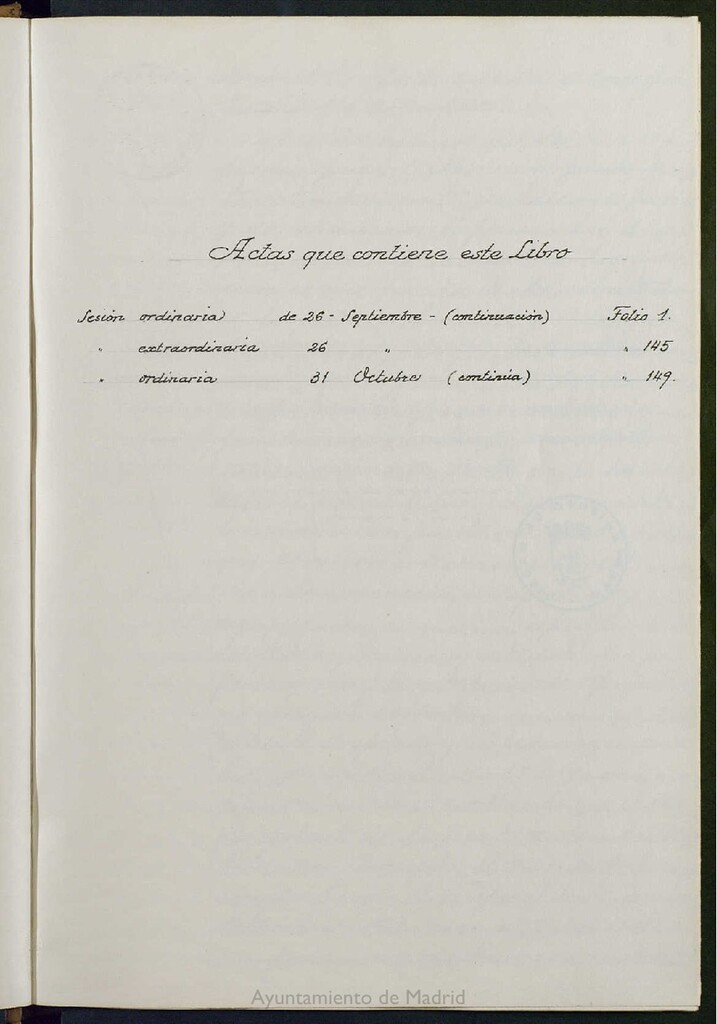 Actas que contiene este Libro
Sesión ordinaria de 26 - Septiembre - (continuación) Folio 1.
" extraordinaria 26 " " 145
" ordinaria 31 Octubre (continúa) " 149.
Ayuntamiento de Madrid